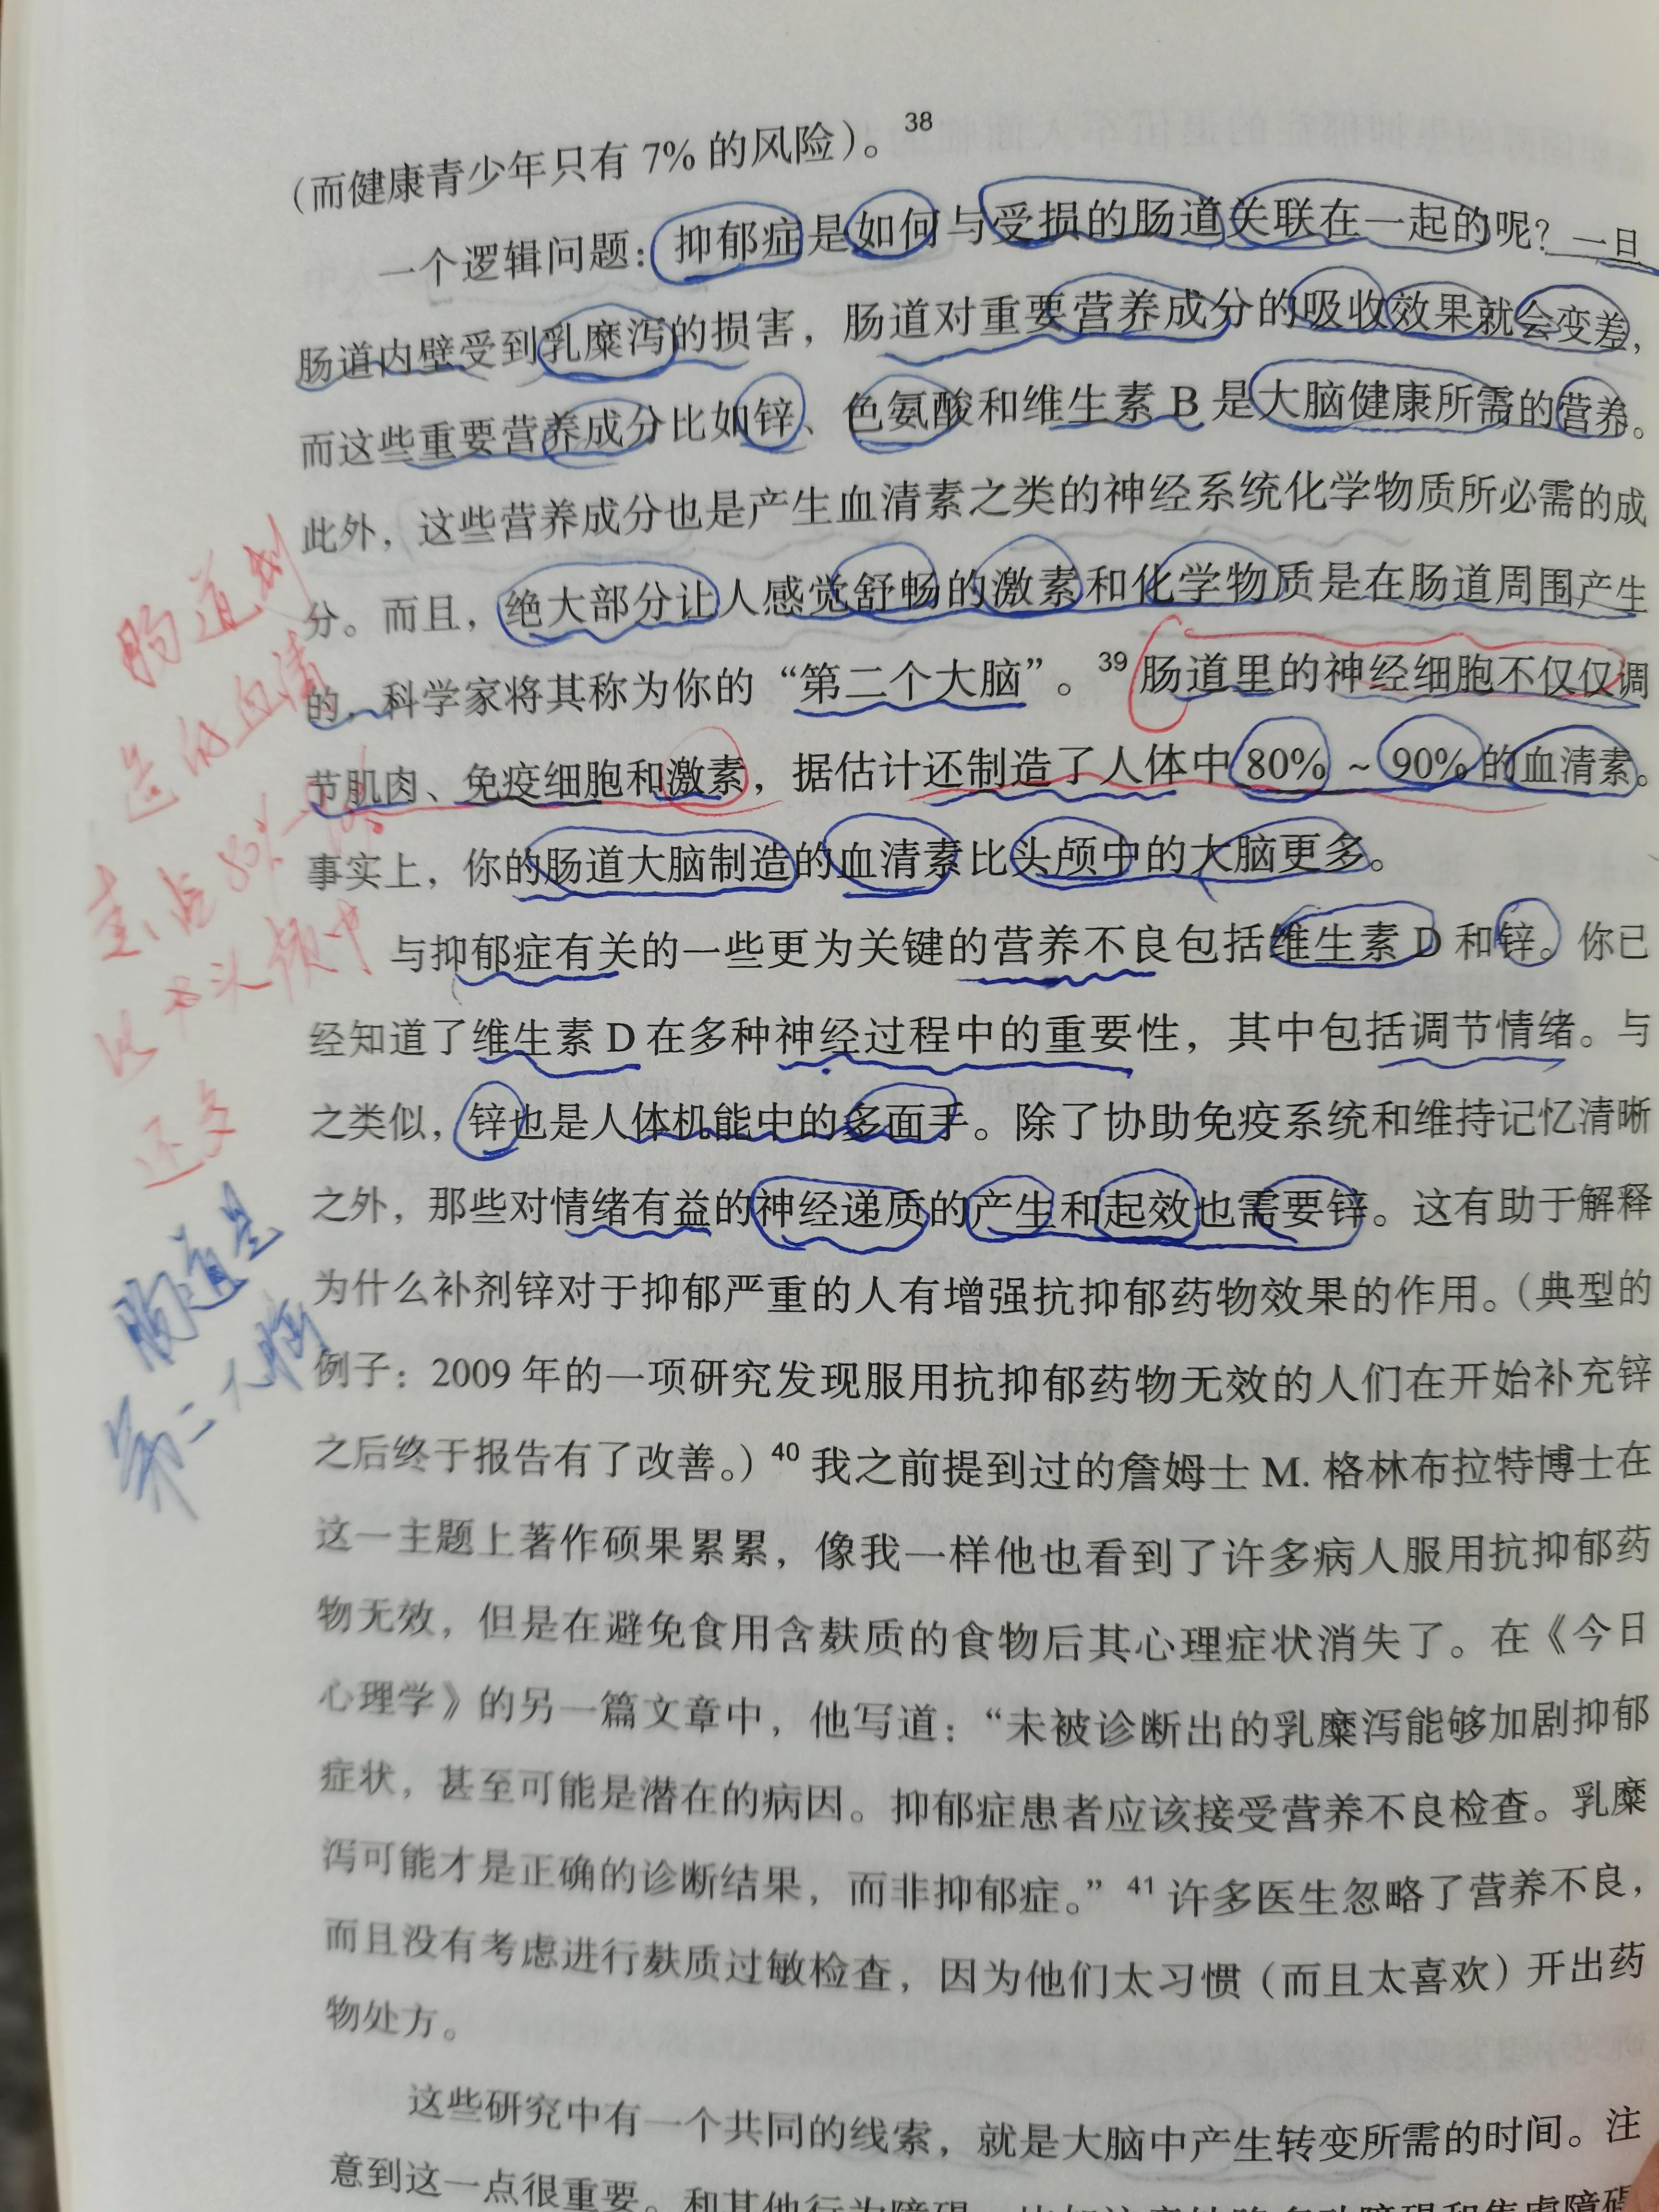 （而健康青少年只有 7% 的风险）。38
一个逻辑问题：抑郁症是如何与受损的肠道关联在一起的呢？一旦
肠道内壁受到乳糜泻的损害，肠道对重要营养成分的吸收效果就会变差，
而这些重要营养成分比如锌、色氨酸和维生素 B 是大脑健康所需的营养。
此外，这些营养成分也是产生血清素之类的神经系统化学物质所必需的成
分。而且，绝大部分让人感觉舒畅的激素和化学物质是在肠道周围产生
的，科学家将其称为你的“第二个大脑”。39 肠道里的神经细胞不仅仅调
节肌肉、免疫细胞和激素，据估计还制造了人体中 80% ~ 90% 的血清素。
事实上，你的肠道大脑制造的血清素比头颅中的大脑更多。
与抑郁症有关的一些更为关键的营养不良包括维生素 D 和锌。你已
经知道了维生素 D 在多种神经过程中的重要性，其中包括调节情绪。与
之类似，锌也是人体机能中的多面手。除了协助免疫系统和维持记忆清晰
之外，那些对情绪有益的神经递质的产生和起效也需要锌。这有助于解释
为什么补剂锌对于抑郁严重的人有增强抗抑郁药物效果的作用。（典型的
例子：2009 年的一项研究发现服用抗抑郁药物无效的人们在开始补充锌
之后终于报告有了改善。）40 我之前提到过的詹姆士 M. 格林布拉特博士在
这一主题上著作硕果累累，像我一样他也看到了许多病人服用抗抑郁药
物无效，但是在避免食用含麸质的食物后其心理症状消失了。在《今日
心理学》的另一篇文章中，他写道：“未被诊断出的乳糜泻能够加剧抑郁
症状，甚至可能是潜在的病因。抑郁症患者应该接受营养不良检查。乳糜
泻可能才是正确的诊断结果，而非抑郁症。”41 许多医生忽略了营养不良，
而且没有考虑进行麸质过敏检查，因为他们太习惯（而且太喜欢）开出药
物处方。
这些研究中有一个共同的线索，就是大脑中产生转变所需的时间。注
意到这一点很重要。和其他行为障碍
肠道制
造的血清
素占80%
头颅中
还多
肠道是
第二个脑